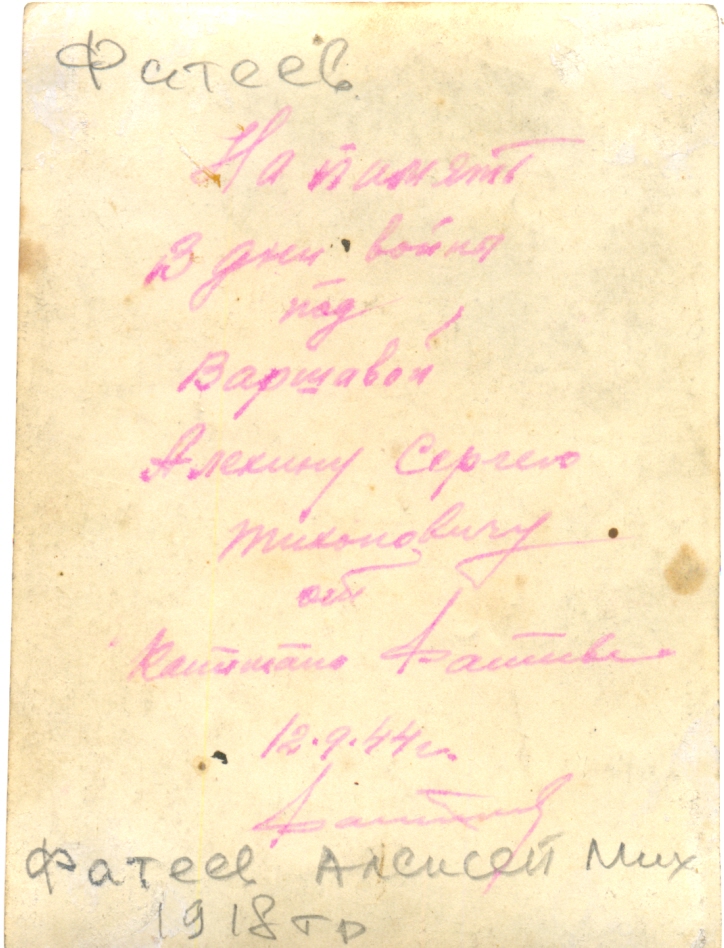 Фатеев
На память
В дни война
под
Варшавой
Алехину Сергею
Тихоновичу
от
Капитана Фатеева
12.9.44 г.
Фатеев
Фатеев Алексей Мих
1918 гр